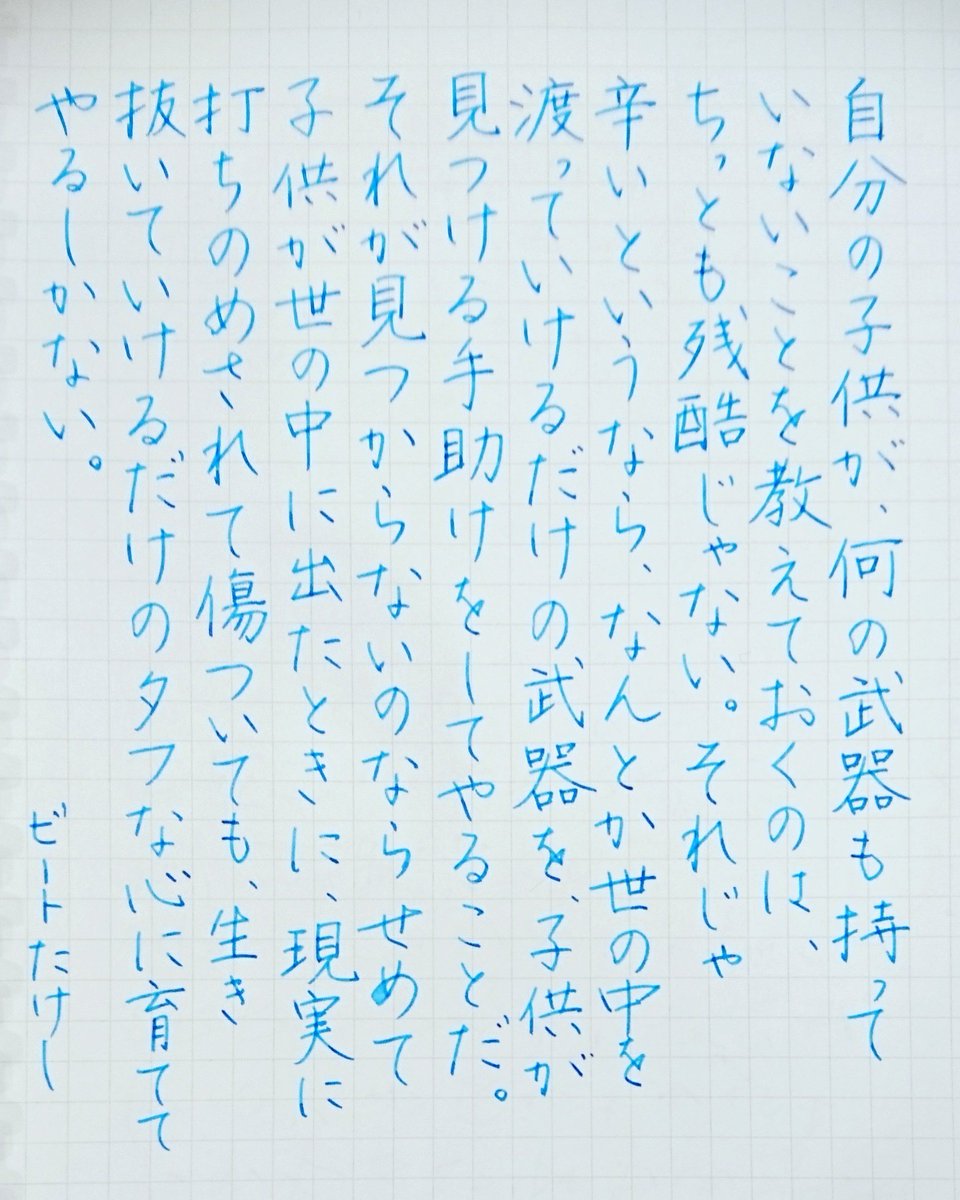 自分の子供が、何の武器も持って
いないことを教えておくのは、
ちっとも残酷じゃない。それじゃ
辛いというなら、なんとか世の中を
渡っていけるだけの武器を、子供が
見つける手助けをしてやることだ。
それが見つからないのならせめて
子供が世の中に出たときに、現実に
打ちのめされて傷ついても、生き
抜いていけるだけのタフな心に育てて
やるしかない。
ビートたけし